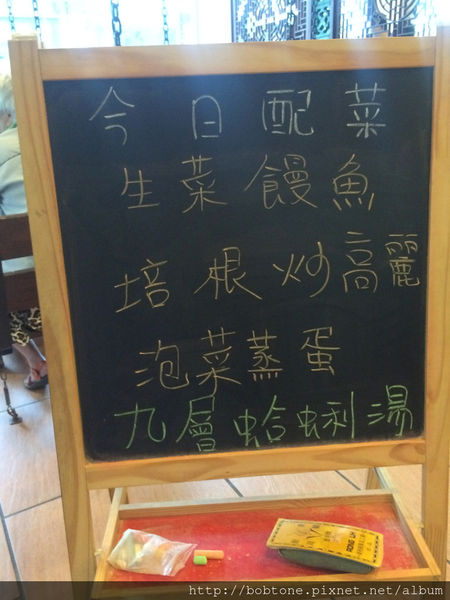 今日配菜
生菜饅魚
培根炒高麗
泡菜蒸蛋
九層蛤蜊湯
RONG LIH
http://bobtone.pixnet.net/album